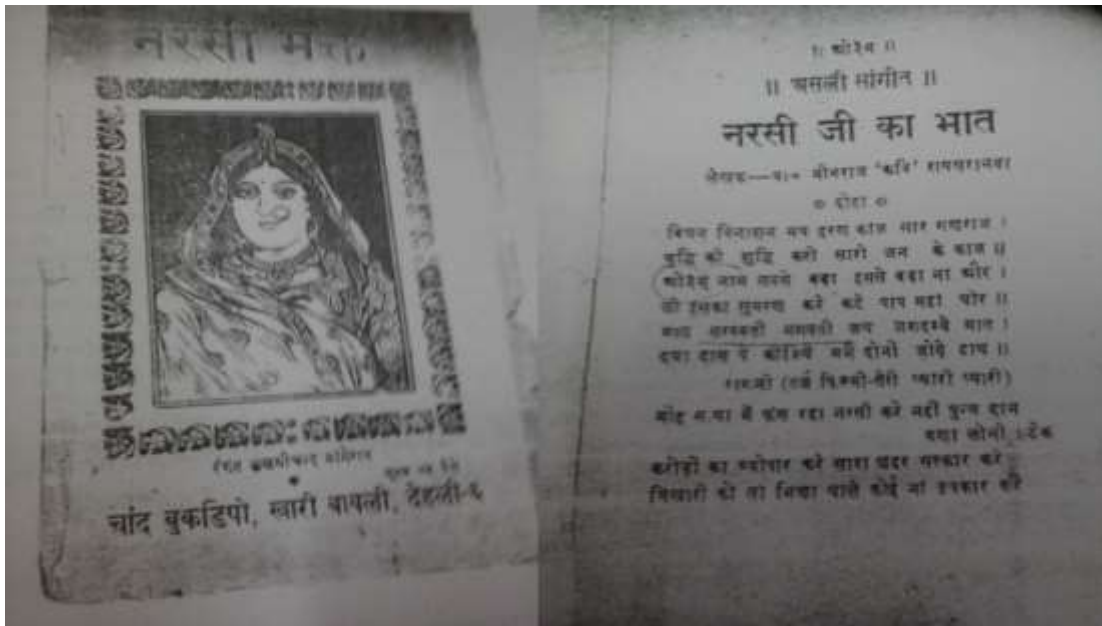 नरसी भक्त
चांद बुकडिपो, खारी बावली, देहली-६
।। ओ३म् ।।
।। असली सांगीत ।।
नरसी जी का भात
लेखक—पं०
दोहा
विघन विनाशन भय हरण काज सार गणराज ।
बुद्धि की शुद्धि करो सारो जन के काज ।।
ओ३म् नाम सबसे बड़ा इससे बड़ा ना और ।
जो इसका सुमरण करे कटें पाप महा घोर ।।
माता सरस्वती भगवती जय जगदम्बे मात ।
दया दास पे कीजिये मैं दोनों जोड़े हाथ ।।
(तर्ज फिल्मी-तेरी प्यारी प्यारी)
मोह माया में फंस रहा नरसी करे नहीं पुन्य दान
टेक
करोड़ों का व्योपार करे सारा शहर सत्कार करे
भिखारी को ना भिक्षा घाले कोई नां उपकार करे